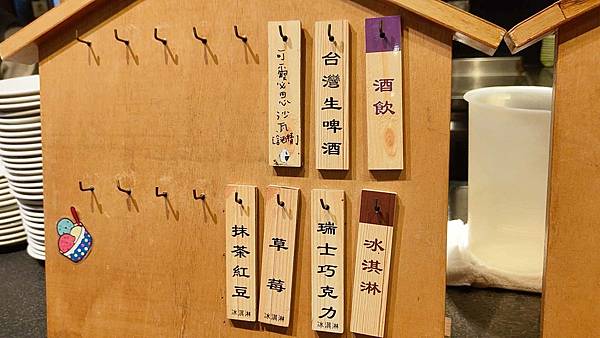 酒飲
台灣生啤酒
可爾必思沙瓦
冰淇淋
瑞士巧克力
冰淇淋
草莓
冰淇淋
抹茶紅豆
冰淇淋